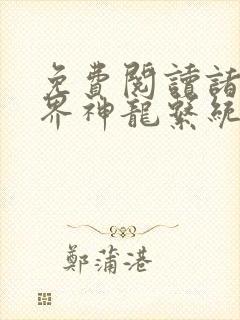 免費閱讀諸
界神龍繫統
鄭蒲港